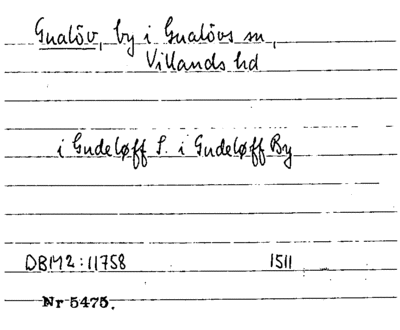 Gualöv, by i Gualövs sn,
Villands hd
i Gudeløff S. i Gudeløff By
DBM2:11758 1511
Nr 5475.